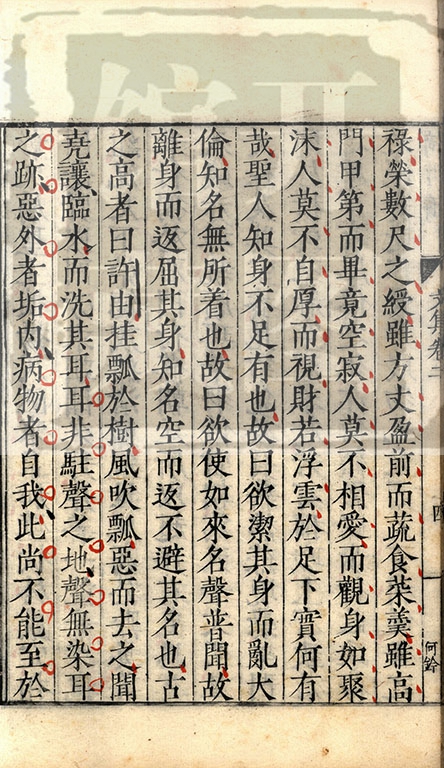 祿榮數尺之綬雖方丈盈前而蔬食菜羹雖高
門甲第而畢竟空寂人莫不相愛而觀身如聚
沫人莫不自厚而視財若浮雲於足下實何有
哉聖人知身不足有也故曰欲潔其身而亂大
倫知名無所着也故曰欲使如來名聲普聞故
離身而返屈其身知名空而返不避其名也古
之高者曰許由挂瓢於樹風吹瓢惡而去之聞
堯讓臨水而洗其耳耳非駐聲之地聲無染耳
之跡惡外者垢內病物者自我此尚不能至於